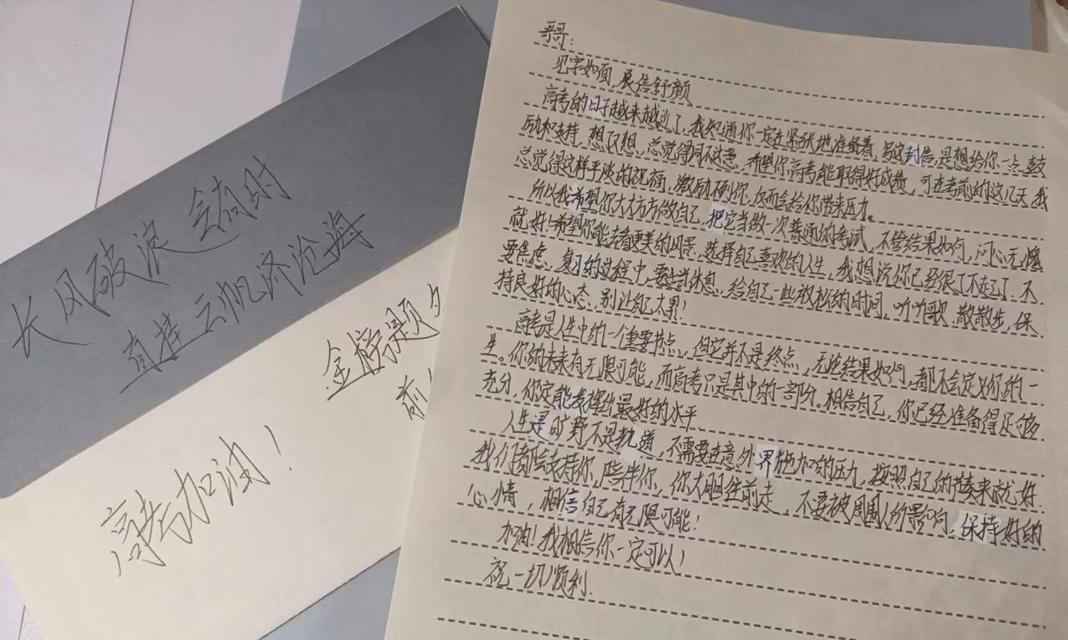 长风破浪会有时
直挂云帆济沧海
金榜题
前
高考加油！
哥哥：
见字如面，展信舒颜
高考的日子越来越近了，我知道你一定在紧张地准备着，写这封信，是想给你一点鼓
励和支持，想了想，总觉得词不达意，希望你高考能取得好成绩，可在考前的这几天，我
总觉得这样平淡的祝福，激励不到你，反而会给你带来压力。
所以我希望你大大方方做自己，把它当做一次普通的考试，不管结果如何，问心无愧
就好！希望你能去看更美的风景，选择自己喜欢的人生，我想说你已经很了不起了，不
要焦虑，复习的过程中，要注意休息，给自己一些放松的时间，听听歌，散散步，保
持良好的心态，别让自己太累！
高考是人生中的一个重要节点，但它并不是终点，无论结果如何，都不会定义你的一
生。你的未来有无限可能，而高考只是其中的一部分。相信自己，你已经准备得足够
充分，你定能发挥出最好的水平
人生是旷野不是轨道，不需要在意外界施加的压力，按照自己的节奏来就好，
我们都会支持你，陪伴你，你大胆往前走，不要被周围人所影响，保持好的
心情，相信自己有无限可能！
加油！我相信你一定可以！
祝一切顺利.